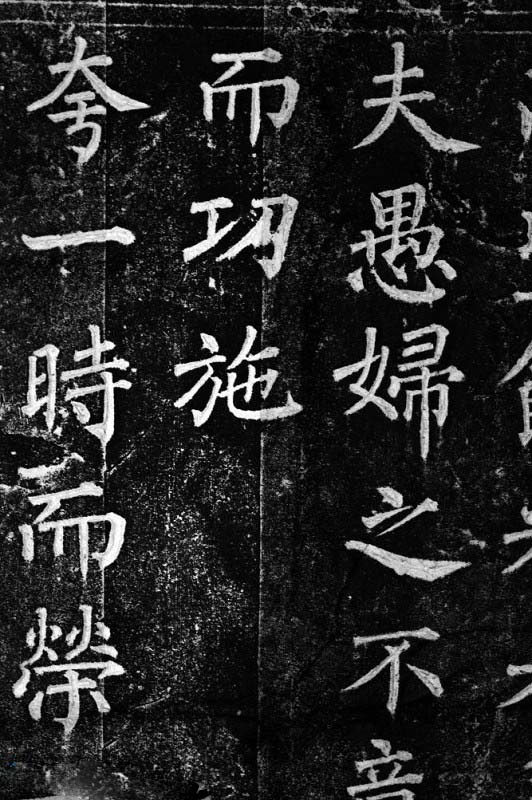 夫愚婦之不意
而功施
夸一時而榮